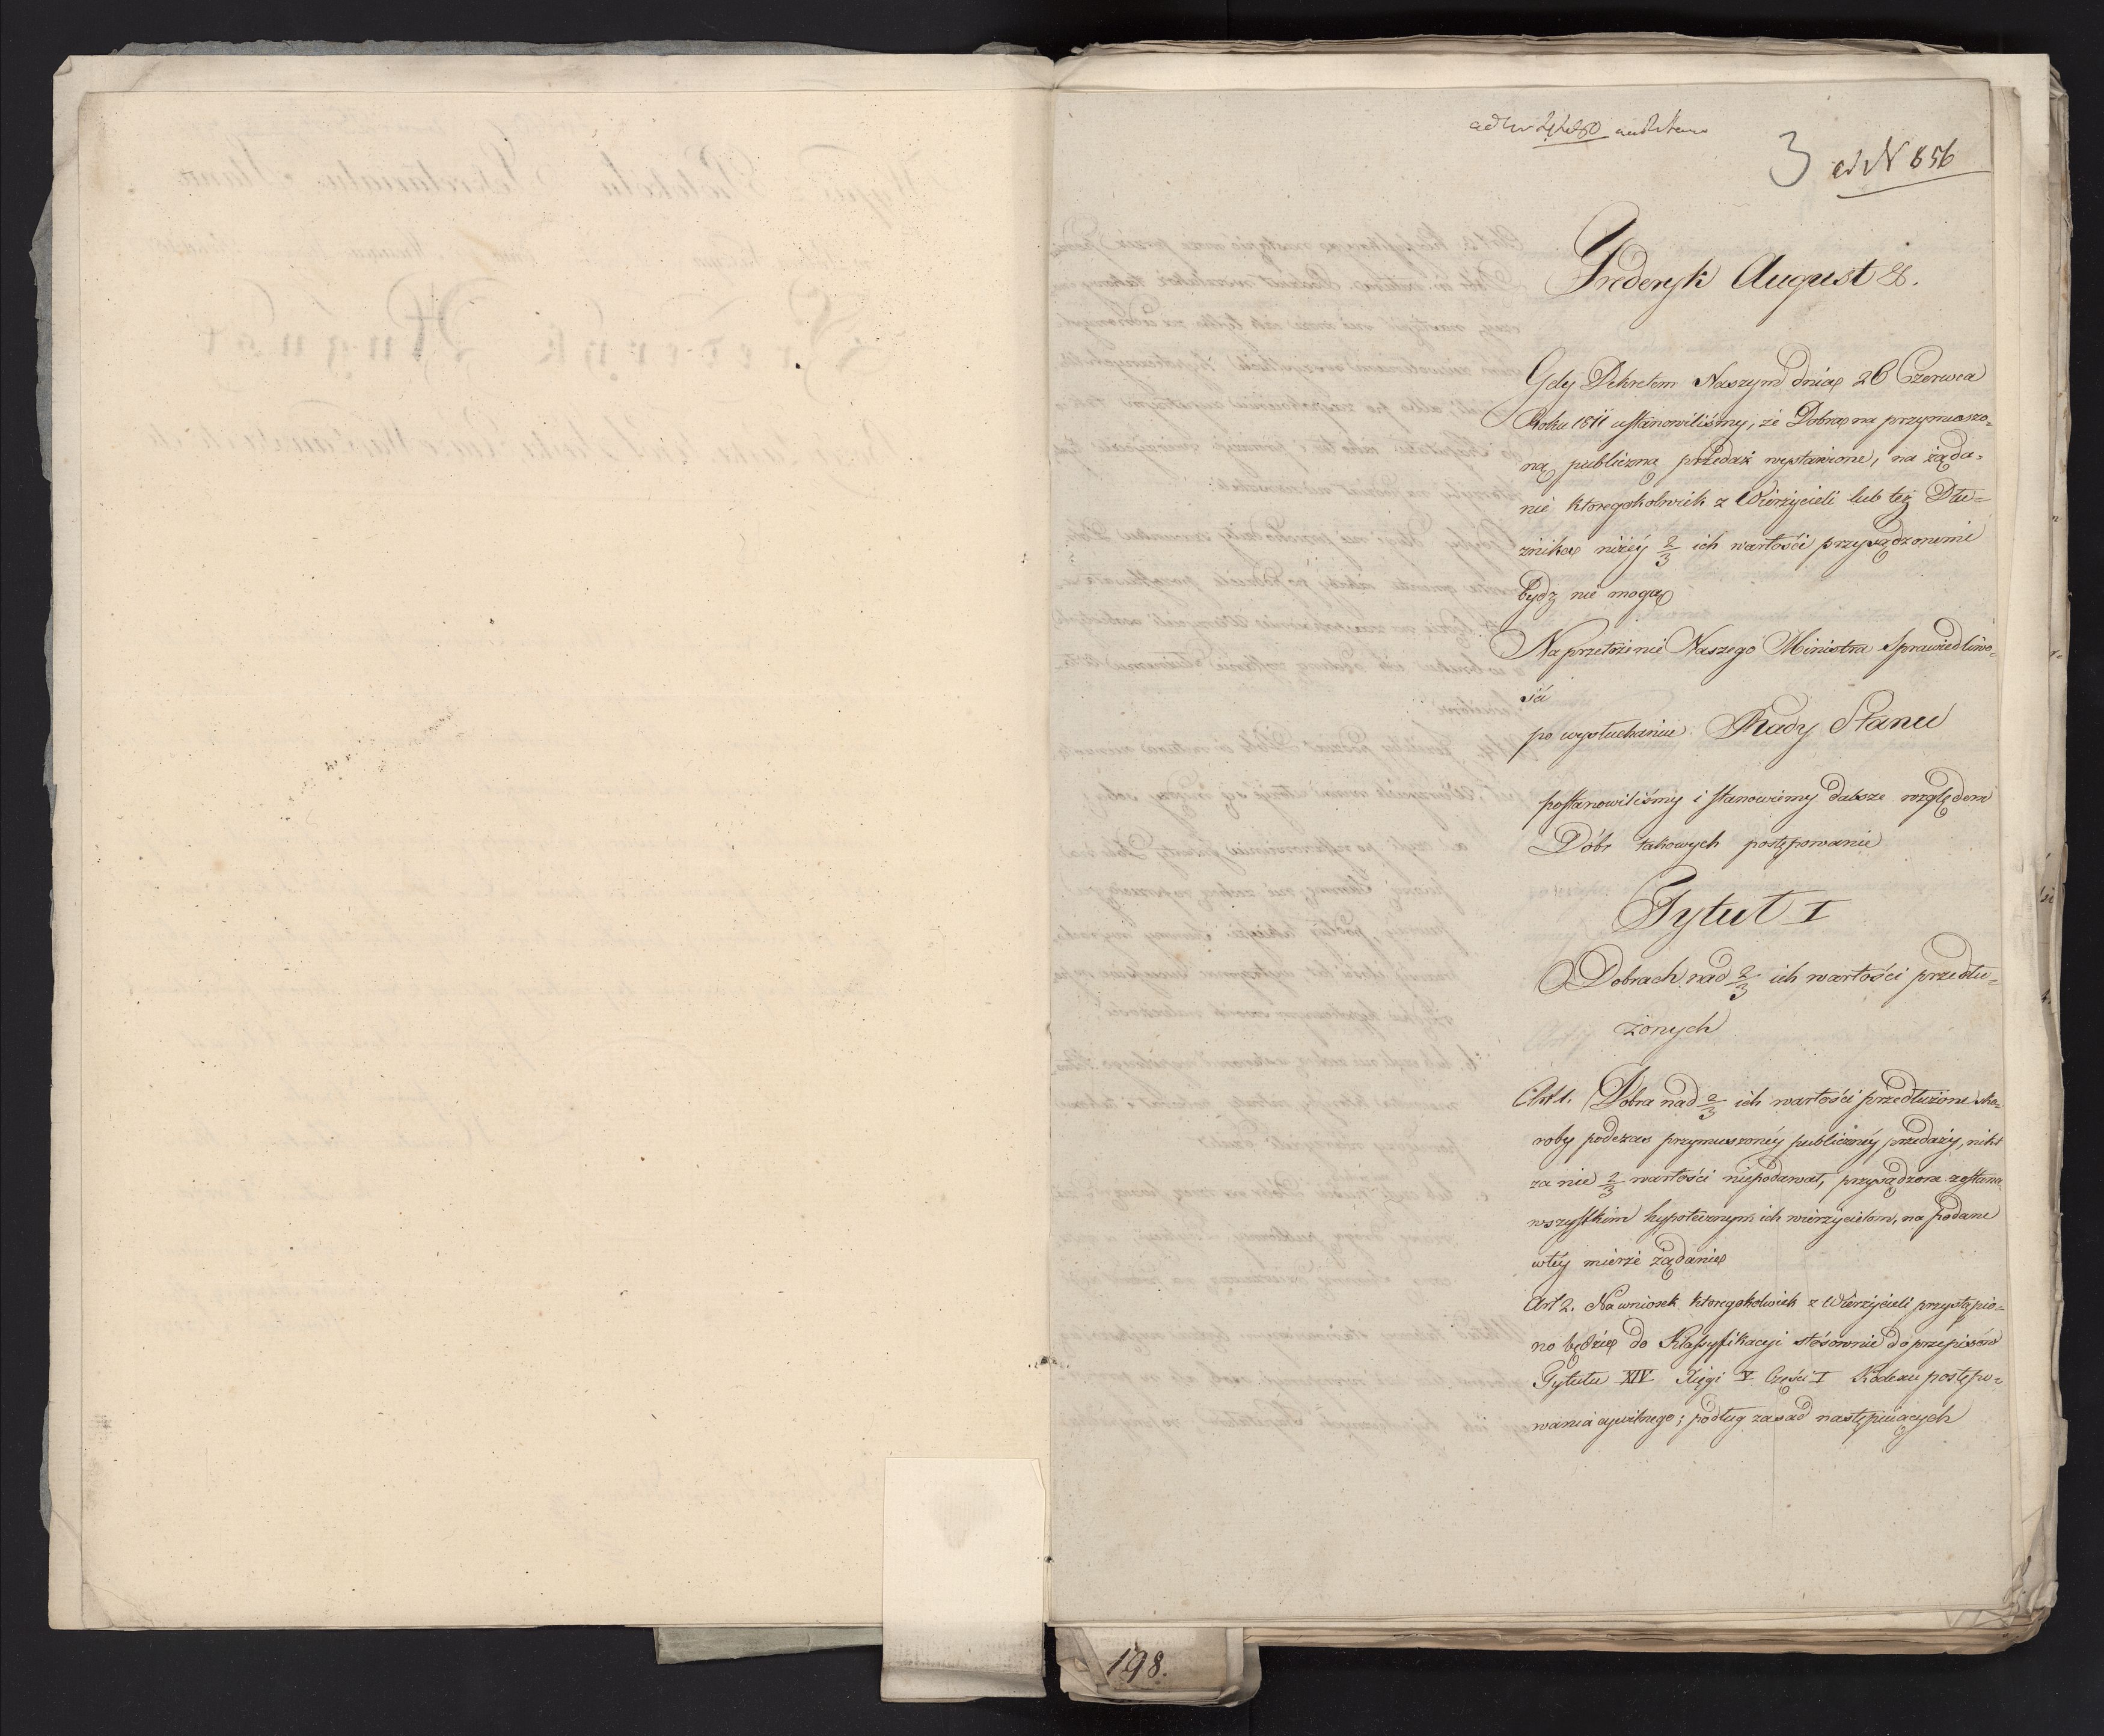 3 ad N 856
Frederyk August &.
Gdy Dekretem Naszym dnia 26 Czerwca
Roku 1811 ustanowiliśmy, że Dobra na przymuszo-
ną publiczną przedaż wystawione, na żąda-
nie ktoregokolwiek z Wierzycieli lub też Dłu-
żnika niżey 2/3 ich wartości przysądzonemi
bydz nie mogą
Na przełożenie Naszego Ministra Sprawiedliwo-
ści
po wysłuchaniu Rady Stanu
postanowiliśmy i stanowimy dalsze względem
Dóbr takowych postępowanie
Tytuł I
O Dobrach nad 2/3 ich wartości przedłu-
żonych
Art 1. Dobra nad 2/3 ich wartości przedłużone, kto-
roby podczas przymuszonéy publicznéy przedaży, nikt
za nie 2/3 wartości niepodawał, przysądzone zostaną
wszystkim hypotecznym ich wierzycielom, na podane
w téy mierze żądanie
Art 2. Na wniosek ktoregokolwiek z Wierzycieli przystąpio-
no będzie do Klassyfikacyi stósownie do przepisów
Tytułu XIV Xięgi V Części I Kodexu postępo-
wania cywilnego; podług zasad następuiących
198.